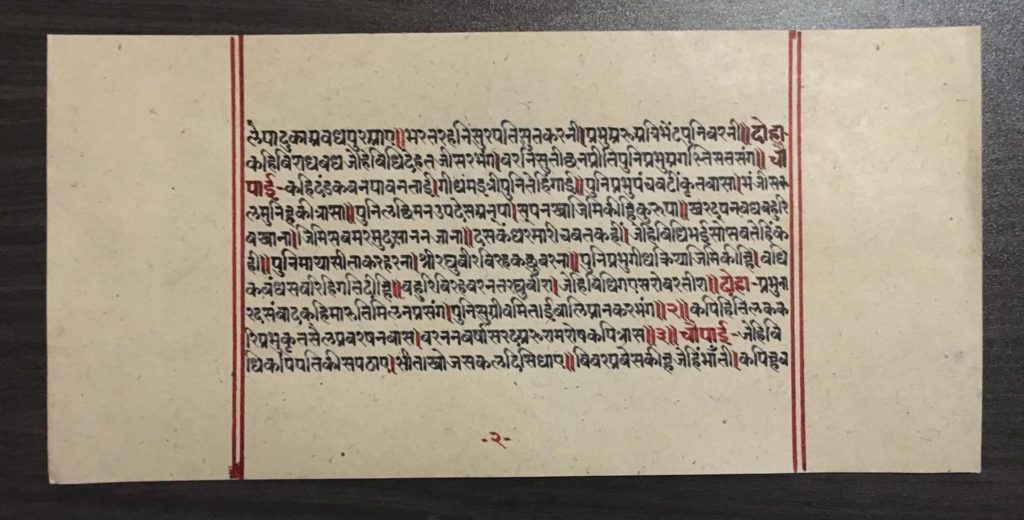 लैपादुकाअवधपुरआए॥भरतरहनिसुरपतिसुतकरनी।प्रभुअरुअत्रिभेंटपुनिबरनी॥दोहा
कहिबिराधबधजेहिबिधिदेहतजीसरभंग।बरनिसुतीछनप्रीतिपुनिप्रभुअगस्तिसतसंग॥चौ
पाई-कहिदंडकबनपावनताई।गीधमइत्रीपुनितेहिंगाई॥पुनिप्रभुपंचबटींकृतबासा।भंजीसक
लमुनिन्हकीत्रासा॥पुनिलछिमनउपदेसअनूपा।सूपनखाजिमिकीन्हिकुरूपा॥खरदूषनबधबहुरि
बखाना।जिमिसबमरमुदसाननजाना॥दसकंधरमारीचबतकही।जेहिबिधिभईसोसबतेहिंक
ही॥पुनिमायासीताकरहरना।श्रीरघुबीरबिरहकछुबरना॥पुनिप्रभुगीधक्रियाजिमिकीन्ही।बधि
कबंधसबरिहिगतिदीन्ही॥बहुरिबिरहबरनतरघुबीरा।जेहिबिधिगएसरोबरतीरा॥दोहा-प्रभुना
रदसंबादकहिमारुतिमिलनप्रसंग।पुनिसुग्रीवमिताईबालिप्रानकरभंग॥२॥कपिहितिलकक
रिप्रभुकृतसैलप्रबरषनबास।बरननबर्षासरदअरुरामरोषकपित्रास॥३॥चौपाई-जेहिबि
धिकपिपतिकीसपठाए।सीताखोजसकलदिसिधाए॥बिबरप्रबेसकीन्हजेहिभाँती।कपिन्हब
-२-